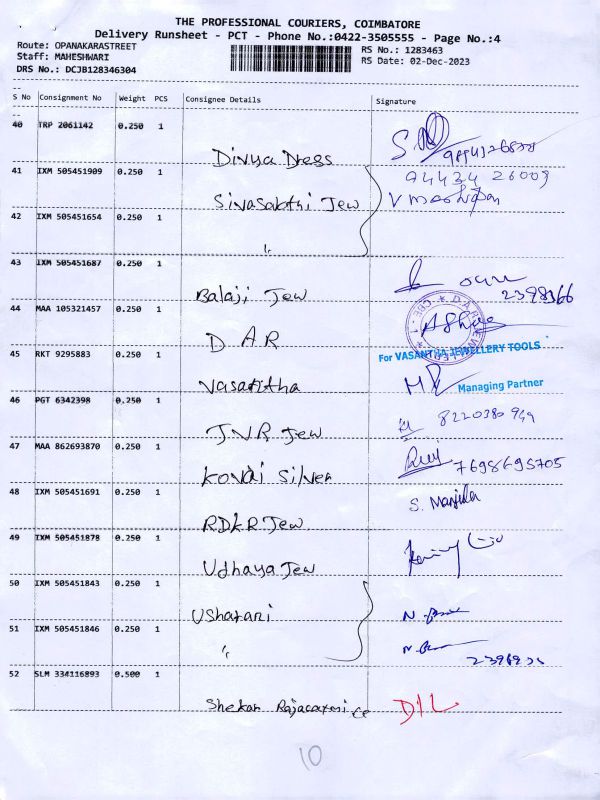 THE PROFESSIONAL COURIERS, COIMBATORE
Delivery Runsheet - PCT - Phone No.:0422-3505555 - Page No.:4
Route: OPANAKARASTREET
RS No.: 1283463
Staff: MAHESHWARI
RS Date: 02-Dec-2023
DRS No.: DCJB128346304
S No Consignment No Weight PCS Consignee Details Signature
40 TRP 2061142 0.250 1
Divya Dress
41 IXM 505451909 0.250 1
94434 26009
Sivasakthi Jew
42 IXM 505451654 0.250 1
"
43 IXM 505451687 0.250 1
Balaji Jew 2398366
44 MAA 105321457 0.250 1
D A R
45 RKT 9295883 0.250 1
For VASANTHA JEWELLERY TOOLS
Vasantha
Managing Partner
46 PGT 6342398 0.250 1
JNR Jew
47 MAA 862693870 0.250 1
Kovai Silver 7698695705
48 IXM 505451691 0.250 1
S. Manjula
RDKR Jew
49 IXM 505451878 0.250 1
Udhaya Jew
50 IXM 505451843 0.250 1
Usharani
51 IXM 505451846 0.250 1
"
52 SLM 334116893 0.500 1
Shekar D/L
10